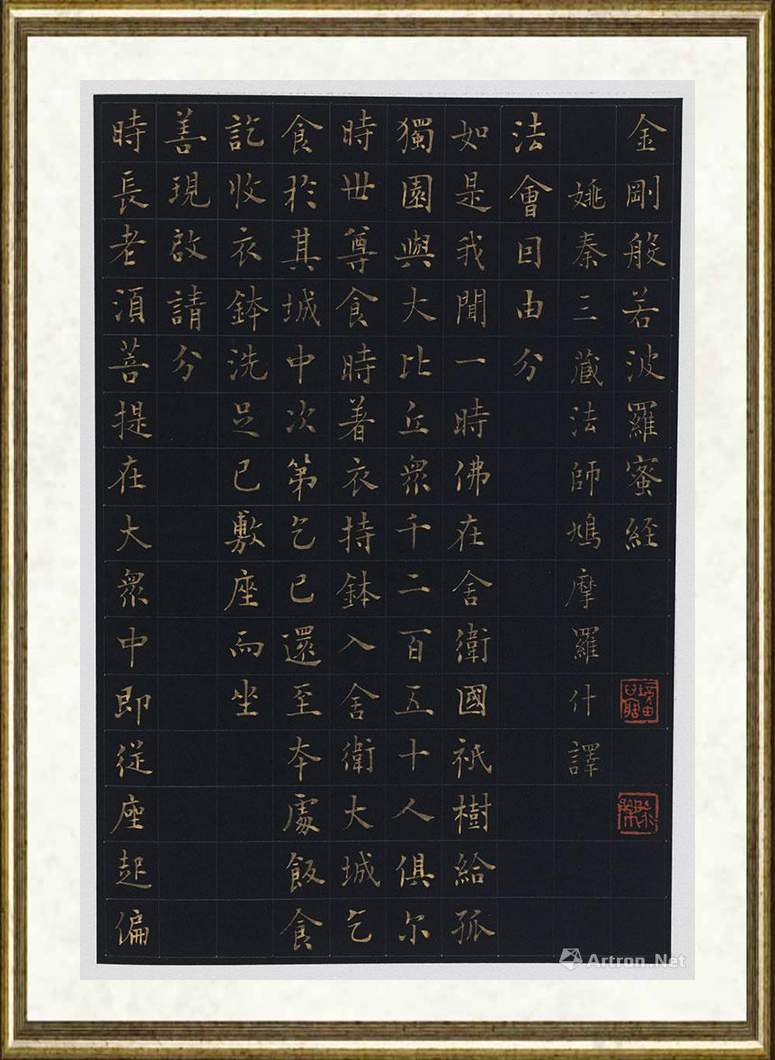 金剛般若波羅蜜経
姚秦三蔵法師鳩摩羅什譯
法會因由分
如是我聞一時佛在舍衛國祇樹給孤
獨園與大比丘衆千二百五十人俱尒
時世尊食時著衣持鉢入舍衛大城乞
食於其城中次第乞已還至本處飯食
訖收衣鉢洗足已敷座而坐
善現啟請分
時長老湏菩提在大衆中即從座起偏
Artron.Net